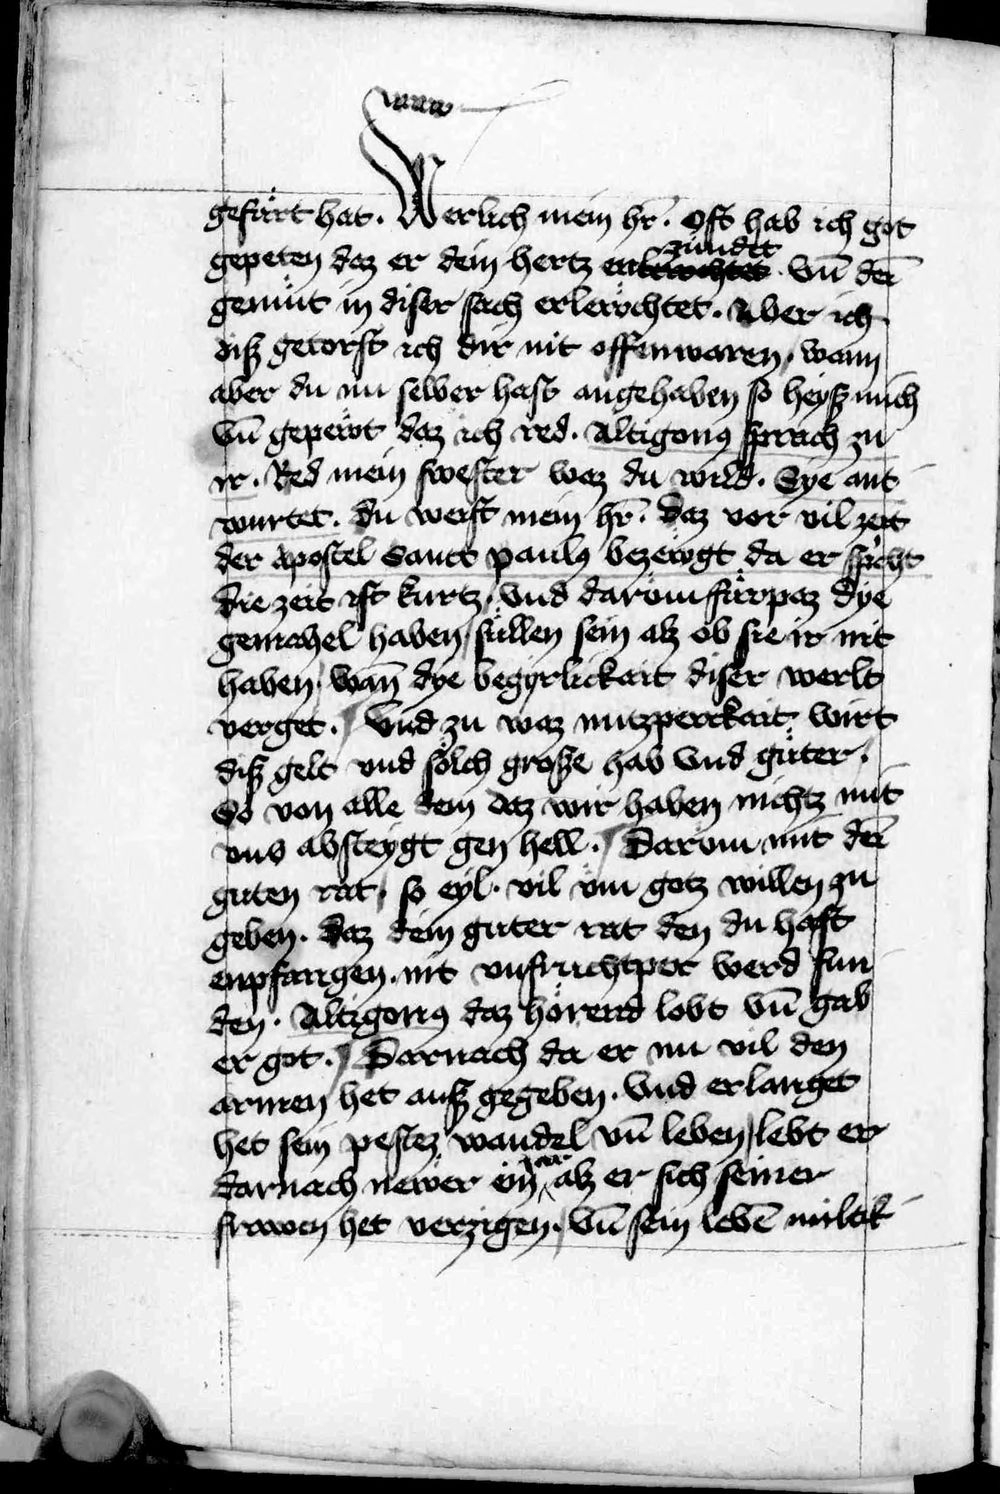 gefürt hat. Werlich mein hr̄. Oft hab ich got
gepeten daz er dein hertz enzündet. Vn̄ dein̄
gemüt in diser sach erlewchtet. Aber ich
diß getorst ich dir nit offenwaren, wann
aber du nu selber hast angehaben so heyß mich
Vn̄ gepewt daz ich red. Altigonus sprach zu
ir. Red mein swester waz du wild. Sye ant
wurtet. Du weist mein hr̄. Daz vor vil zeit
der apostel Sanct paulus bezewgt da er spricht
die zeit ist kurtz, Vnd darüm fürpaz dye
gemahel haben, süllen sein alz ob sie ir nit
haben. Wan̄ dye begyrlickait diser werlt
verget. Vnd zu waz nutzperckait wirt
diß gelt vnd sölch große hab Vnd güter.
So von alle dem daz wir haben nichtz mit
vns absteygt gen hell. Darüm mit dem̄
guten rat, so eyl. vil üm gotz willen zu
geben. Daz dein guter rat den du hast
enpfangen. nit vnfruchtper werd fun
den. Altigonus daz hörend lobt Vn̄ gab
er got. Darnach da er nu vil den
armen het auß gegeben. Vnd erlanget
het sein pestez wandel vn̄ leben, lebt er
darnach newer ein iar alz er sich seiner
frawen het verzigen. Vn̄ sein lebē miltik